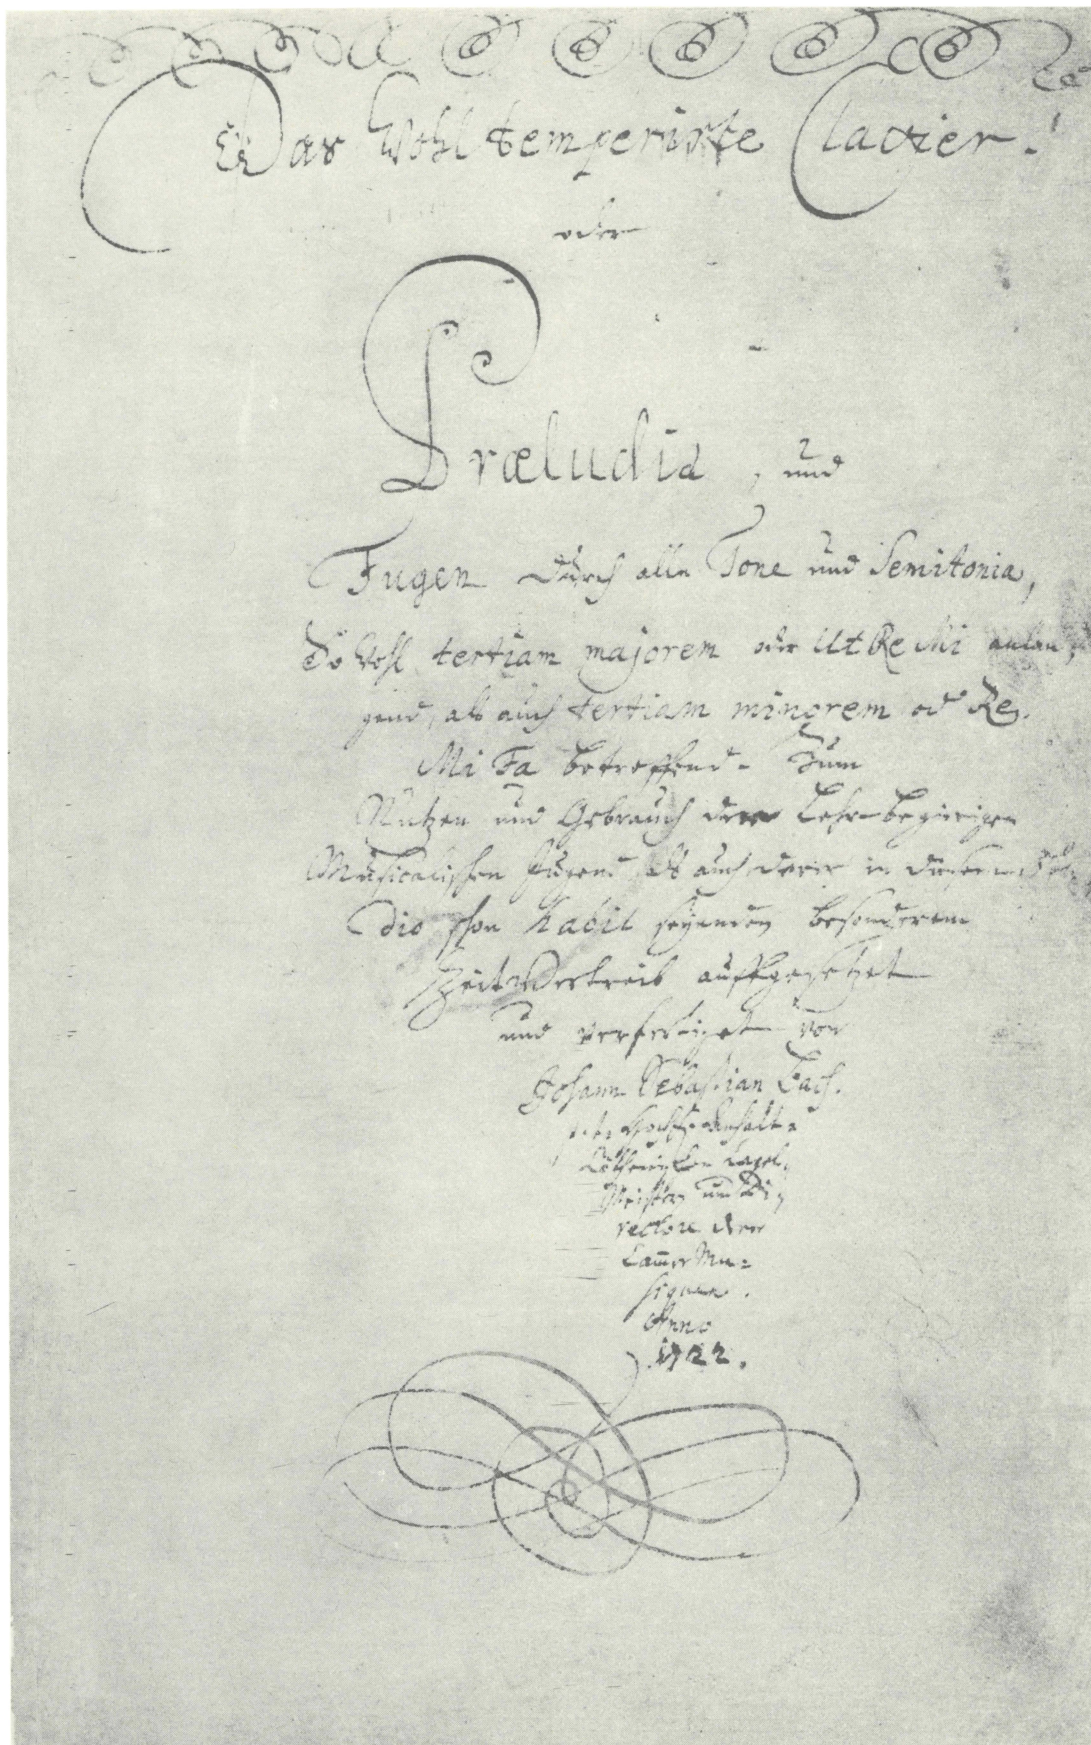 Das Wohltemperirte Clavier.
oder
Præludia, und
Fugen durch alle Tone und Semitonia,
So wohl tertiam majorem oder Ut Re Mi anlan,
gend, als auch tertiam minorem od Re
Mi Fa betreffend. Zum
Nutzen und Gebrauch der Lehr-begierigen
Musicalischen Jugend als auch derer in diesem stu
dio schon habil seyenden besonderem
Zeit Vertreib auffgesetzet
und verfertiget von
Johann Sebastian Bach.
p. t. HochF. Anhalt-
Cöthenischen Capel-
Meistern und Di-
rectore derer
Cammer Mu-
siquen.
Anno
1722.